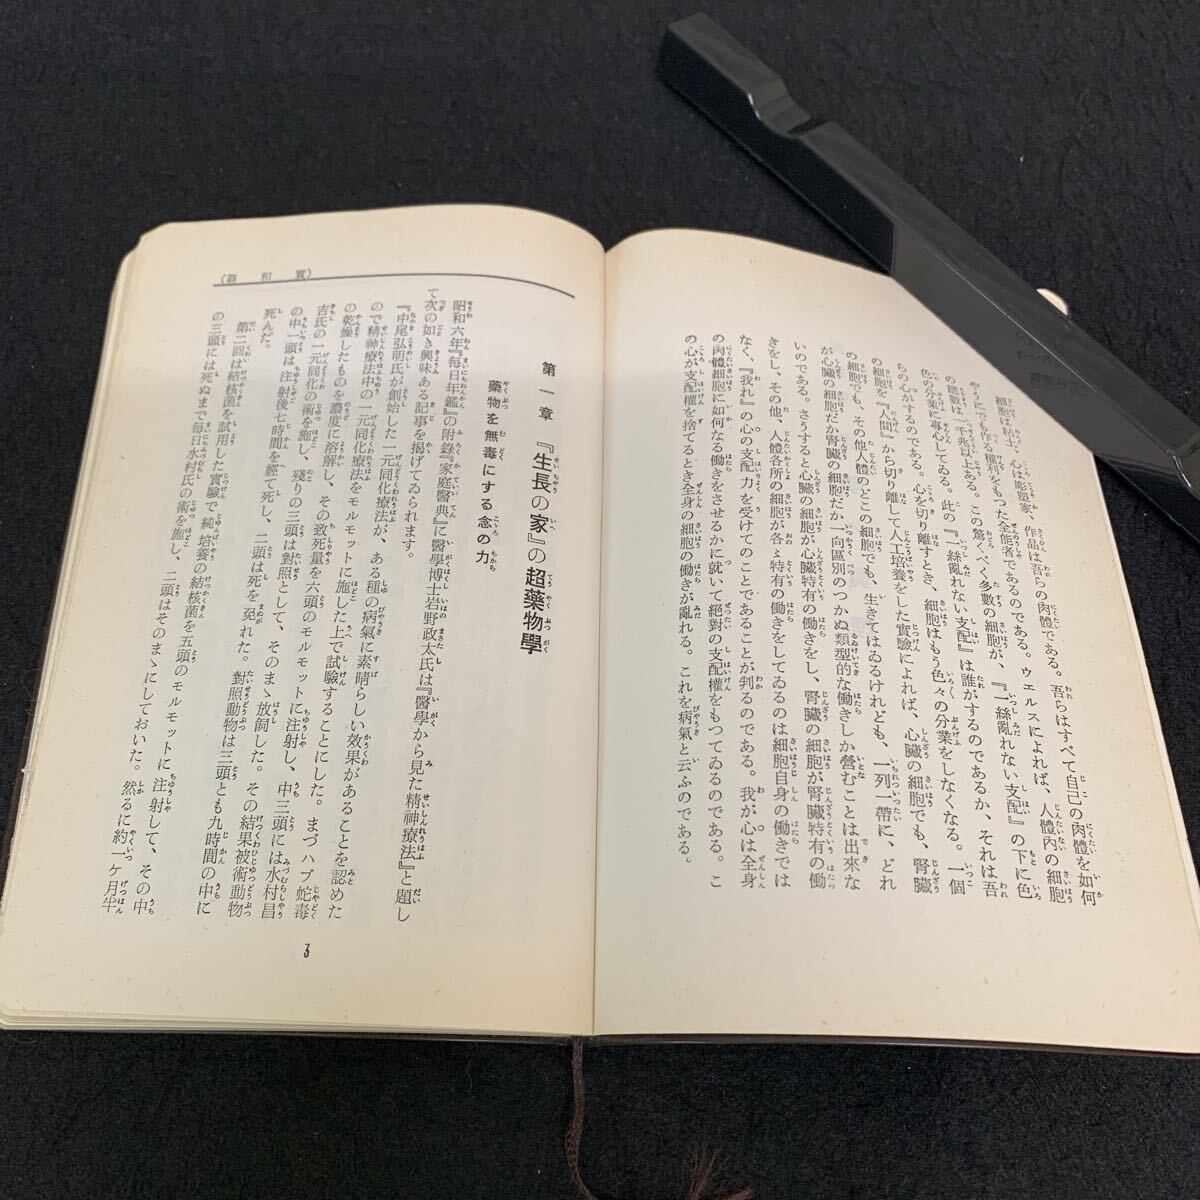 細胞は粘土、心は彫塑家、作品は吾らの肉體である。吾らはすべて自己の肉體を如何
やうにでも作る權利をもつた全能者であるのである。ウエルスによれば、人體内の細胞
の總數は一千兆以上ある。この驚くべく多數の細胞が、『一絲亂れない支配』の下に色
色の分業に專心してゐる。此の『一絲亂れない支配』は誰がするのであるか、それは吾
らの心がするのである。心を切り離すとき、細胞はもう色々の分業をしなくなる。一個
の細胞を『人間』から切り離して人工培養をした實驗によれば、心臟の細胞でも、腎臟
の細胞でも、その他人體のどこの細胞でも、生きてはゐるけれども、一列一帶に、どれ
が心臟の細胞だか腎臟の細胞だか一向區別のつかぬ類型的な働きしか營むことは出來な
いのである。さうすると心臟の細胞が心臟特有の働きをし、腎臟の細胞が腎臟特有の働
きをし、その他、人體各所の細胞が各〻特有の働きをしてゐるのは細胞自身の働きでは
なく、『我れ』の心の支配力を受けてのことであることが判るのである。我が心は全身
の肉體細胞に如何なる働きをさせるかに就いて絕對の支配權をもつてゐるのである。こ
の心が支配權を捨てるとき全身の細胞の働きが亂れる。これを病氣と云ふのである。
(篇和實)
第一章 『生長の家』の超藥物學
藥物を無毒にする念の力
昭和六年『每日年鑑』の附錄『家庭醫典』に醫學博士岩野政太氏は『醫學から見た精神療法』と題し
て次の如き興味ある記事を揭げてゐられます。
『中尾弘明氏が創始した一元同化療法が、ある種の病氣に素晴らしい效果があることを認めた
ので精神療法中の一元同化療法をモルモットに施した上で試驗することにした。まづハブ蛇毒
の乾燥したものを濃度に溶解し、その致死量を六頭のモルモットに注射し、中三頭には水村昌
吉氏の一元同化の術を施し、殘りの三頭は對照として、そのまゝ放飼した。その結果被術動物
の中一頭は注射後七時間を經て死し、二頭は死を免れた。對照動物は三頭とも九時間の中に
死んだ。
第二回は結核菌を試用した實驗で純培養の結核菌を五頭のモルモットに注射して、その中
の三頭には死ぬまで每日水村氏の術を施し、二頭はそのまゝにしておいた。然るに約一ケ月半
3